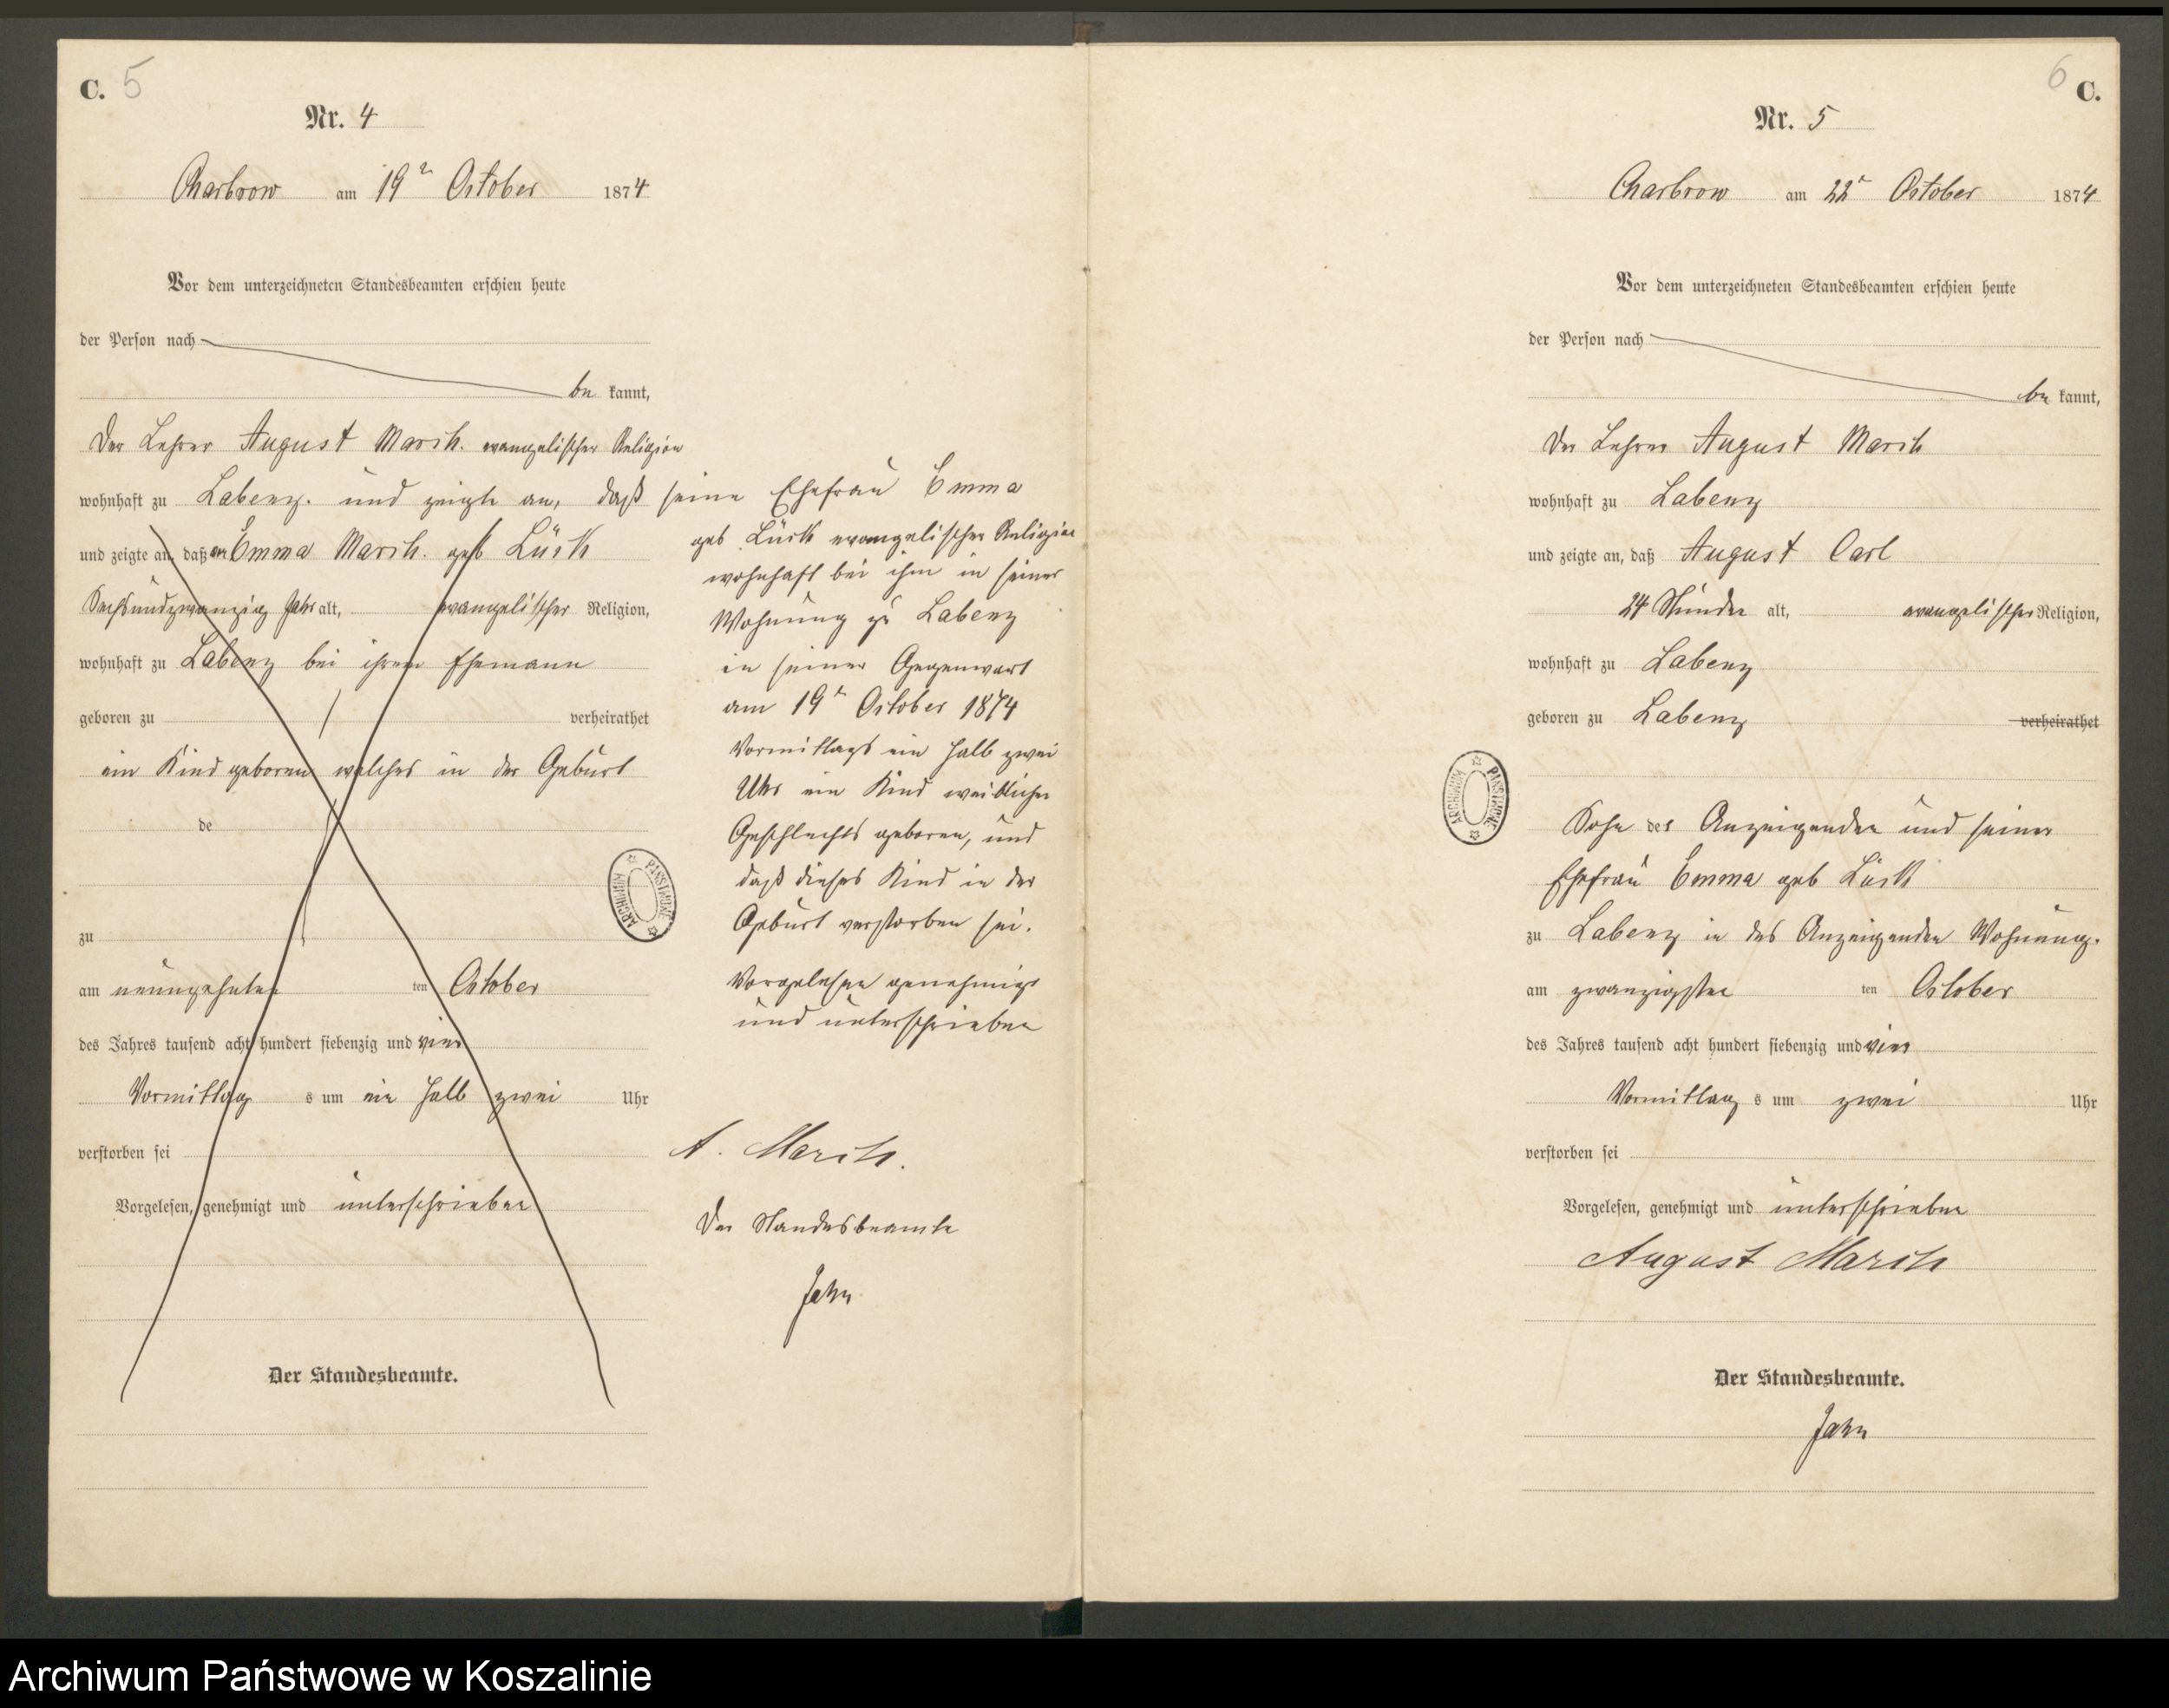 C. 5
Nr. 4
Charbrow am 19n October 1874
Vor dem unterzeichneten Standesbeamten erschien heute
der Person nach
be kannt,
Der Lehrer August March. evangelischer Religion
wohnhaft zu Labenz. und zeigte an, daß seine Ehefrau Emma
und zeigte an, daß Emma March. geb Lück
Sechsundzwanzig Jahr alt, evangelischer Religion,
wohnhaft zu Labenz bei ihrem Ehemann
geboren zu verheirathet
ein Kind geboren welches in der Geburt
de
zu
am neunzehnten ten October
des Jahres tausend acht hundert siebenzig und vier
Vormittag s um ein halb zwei Uhr
verstorben sei
Vorgelesen, genehmigt und unterschrieben
Der Standesbeamte.
geb Lück evangelischer Religion
wohnhaft bei ihm in seiner
Wohnung zu Labenz
in seiner Gegenwart
am 19n October 1874
Vormittags ein halb zwei
Uhr ein Kind weiblichen
Geschlechts geboren, und
daß dieses Kind in der
Geburt verstorben sei.
Vorgelesen genehmigt
und unterschrieben
A. March.
Der Standesbeamte
Jahn
ARCHIWUM PAŃSTWOWE
6 C.
Nr. 5
Charbrow am 22n October 1874
Vor dem unterzeichneten Standesbeamten erschien heute
der Person nach
be kannt,
Der Lehrer August March
wohnhaft zu Labenz
und zeigte an, daß August Carl
24 Stunden alt, evangelischer Religion,
wohnhaft zu Labenz
geboren zu Labenz verheirathet
Sohn des Anzeigenden und seiner
Ehefrau Emma geb Lück
zu Labenz in des Anzeigenden Wohnung.
am zwanzigsten ten October
des Jahres tausend acht hundert siebenzig und vier
Vormittag s um zwei Uhr
verstorben sei
Vorgelesen, genehmigt und unterschrieben
August March
Der Standesbeamte.
Jahn
ARCHIWUM PAŃSTWOWE
Archiwum Państwowe w Koszalinie